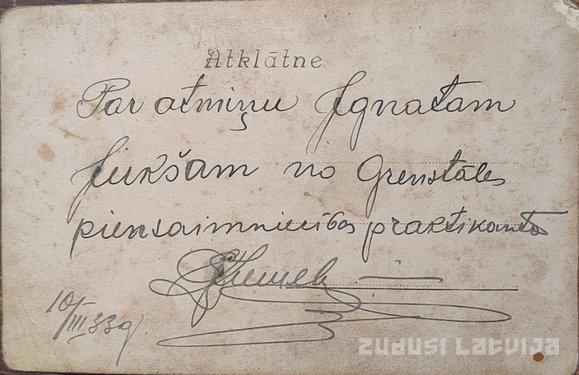 Atklātne
Par atmiņu Jgnatam
Jukšam no Grenstāles
piensaimniecības praktikanta
10/III 33g.
ZUDUSI LATVIJA